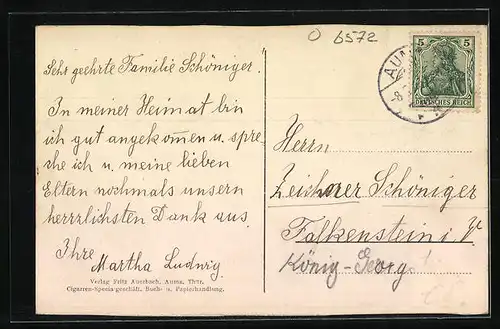 O 6572
5 5
DEUTSCHES REICH
AUM
Sehr geehrte Familie Schöniger.
In meiner Heimat bin
ich gut angekommen u. spre
che ich u. meine lieben
Eltern nochmals unsern
herrlichsten Dank aus.
Ihre
Martha Ludwig
Verlag Fritz Auerbach, Auma, Thür.
Cigarren-Spezialgeschäft, Buch- u. Papierhandlung.
Herrn
Zeichner Schöniger
Falkenstein i. V.
König-Georg